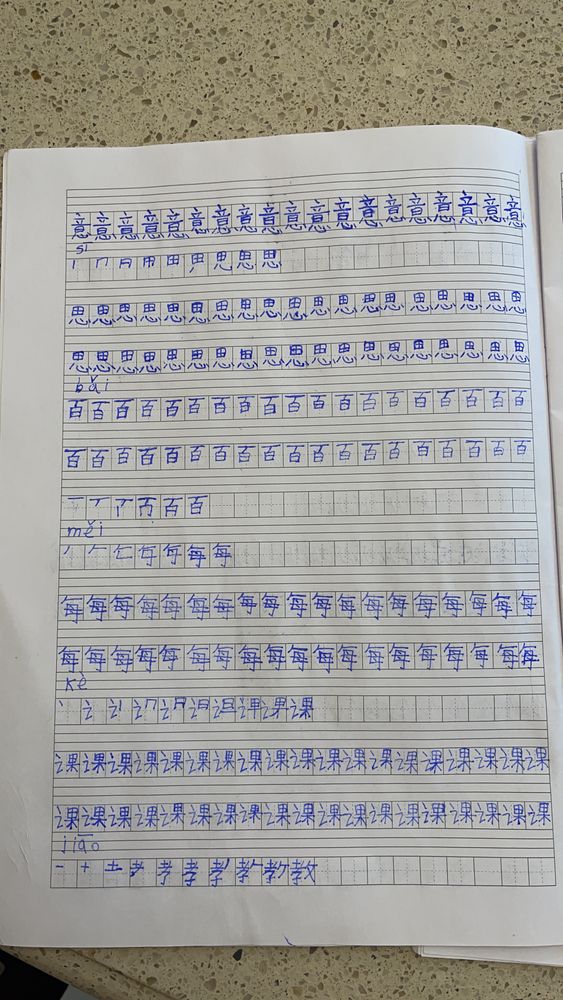 意意意意意意意意意意意意意意意意意意意
sī
丨 冂 日 用 田 思 思 思 思
思思思思思思思思思思思思思思思思思思思
思思思思思思思思思思思思思思思思思思思
bǎi
百百百百百百百百百百百百百百百百百百百
百百百百百百百百百百百百百百百百百百百
一 丆 百 百
měi
丿 𠂉 每 每
每每每每每每每每每每每每每每每每每每每
每每每每每每每每每每每每每每每每每每每
kè
丶 讠 课 课
课课课课课课课课课课课课课课课课课课课
课课课课课课课课课课课课课课课课课课课
jiāo
一 十 土 耂 孝 孝 教 教